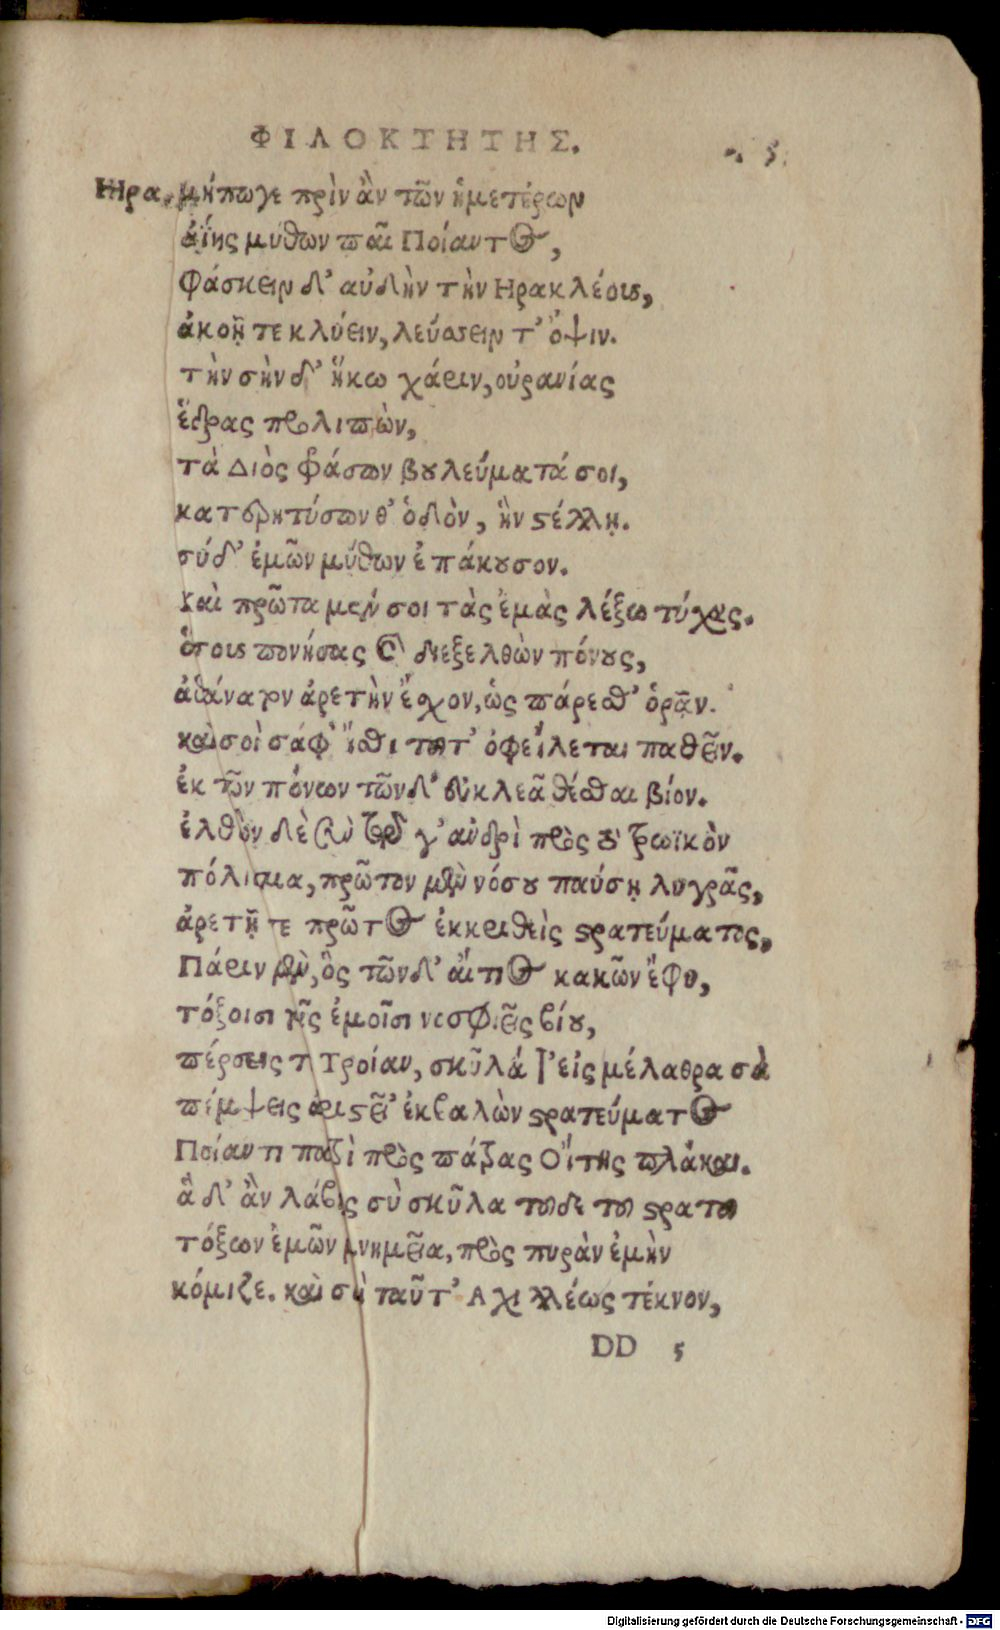 ΦΙΛΟΚΤΗΤΗΣ.
Ηρα. μήπωγε πρὶν ἂν τῶν ἡμετέρων
ἀΐης μύθων παῖ Ποίαντος,
φάσκειν δ' αὐδὴν τὴν Ηρακλέους,
ἀκοῇ τε κλύειν, λεύσσειν τ' ὄψιν.
τὴν σὴν δ' ἥκω χάριν, οὐρανίας
ἕδρας προλιπὼν,
τὰ Διὸς φράσων βουλεύματά σοι,
κατερητύσων θ' ὁδὸν, ἣν στέλλῃ.
σύ δ' ἐμῶν μύθων ἐπάκουσον.
καὶ πρῶτα μέν σοι τὰς ἐμὰς λέξω τύχας.
ὅσους πονήσας καὶ διεξελθὼν πόνους,
ἀθάνατον ἀρετὴν ἔσχον, ὡς πάρεσθ' ὁρᾷν.
καὶ σοὶ σάφ' ἴσθι τοῦτ' ὀφείλεται παθεῖν.
ἐκ τῶν πόνων τῶνδ' εὐκλεᾶ θέσθαι βίον.
ἐλθὼν δὲ σὺν τῷδέ γ' ἀνδρὶ πρὸς τὸ Τρωϊκὸν
πόλισμα, πρῶτον μὲν νόσου παύσῃ λυγρᾶς,
ἀρετῇ τε πρῶτος ἐκκριθεὶς στρατεύματος,
Πάριν μὲν, ὃς τῶνδ' αἴτιος κακῶν ἔφυ,
τόξοισι τοῖς ἐμοῖσι νοσφιεῖς βίου,
πέρσεις τε Τροίαν, σκῦλά τ' εἰς μέλαθρα σὰ
πέμψεις ἀριστεῖ' ἐκβαλὼν στρατεύματος
Ποίαντι πατρὶ πρὸς πάτρας Οἴτης πλάκαι.
ἃ δ' ἂν λάβῃς σὺ σκῦλα τοῦδε τοῦ στρατοῦ
τόξων ἐμῶν μνημεῖα, πρὸς πυρὰν ἐμὴν
κόμιζε. καὶ σὺ ταῦτ' Αχιλλέως τέκνον,
DD 5
Digitalisierung gefördert durch die Deutsche Forschungsgemeinschaft - DFG